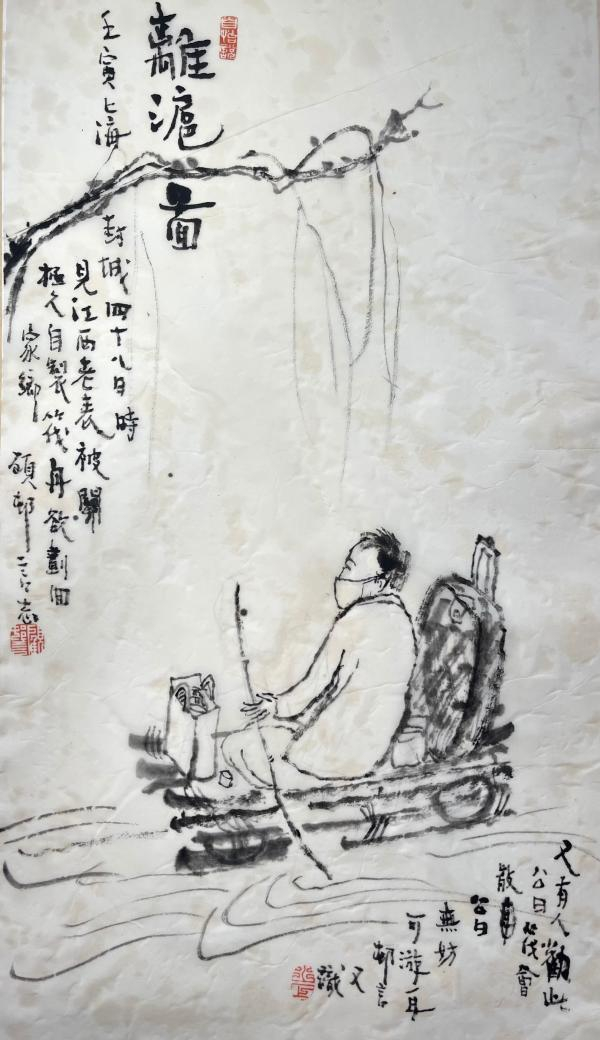 離滬圖
壬寅上海
封城四十八日時
見江西老表被關
極久自製竹筏舟欲劃回
家鄉
又有人勸此
公曰筏會
散
公曰
無妨
可游耳
邨言
又
識